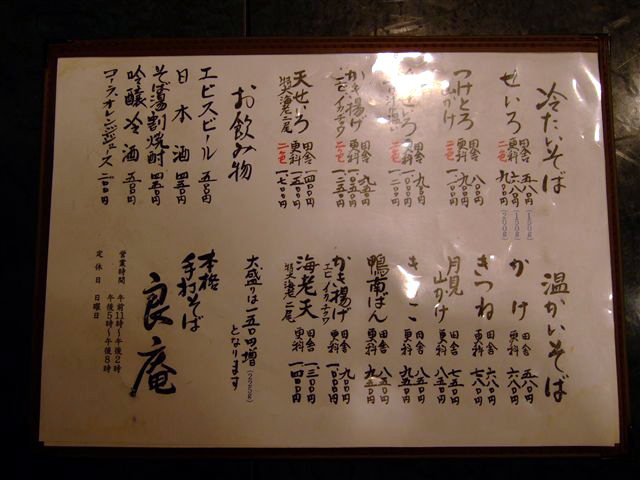 冷たいそば
せいろ
田舎 五八〇円 (150g)
更科 六八〇円 (150g)
二色 九〇〇円 (200g)
つけとろ
山かけ
田舎 八〇〇円
更科 九〇〇円
二色
せいろ
田舎 九〇〇円
更科 一〇〇〇円
二色 一二〇〇円
かき揚げ
エビ イカ
田舎 九五〇円
更科
二色 一二五〇円
天せいろ
特大海老二尾
田舎 一四〇〇円
更科 一五〇〇円
二色 一七〇〇円
お飲み物
エビスビール 五五〇円
日本酒 四五〇円
そば湯割焼酎 四五〇円
吟醸冷酒 五五〇円
コーラ、オレンジジュース 二〇〇円
温かいそば
かけ
田舎 五八〇円
更科 六八〇円
きつね
田舎 六八〇円
更科 七八〇円
月見
山かけ
田舎 七五〇円
更科 八五〇円
田舎 八五〇円
更科 九五〇円
鴨南ばん
田舎 八五〇円
更科 九五〇円
かき揚げ
エビ イカ
田舎 九〇〇円
更科 一〇〇〇円
海老天
特大海老二尾
田舎 一三〇〇円
更科 一四〇〇円
大盛りは一五〇円増 (220g)
となります
本格
手打そば
良庵
営業時間 午前11時〜午後2時
午後5時〜午後8時
定休日 日曜日